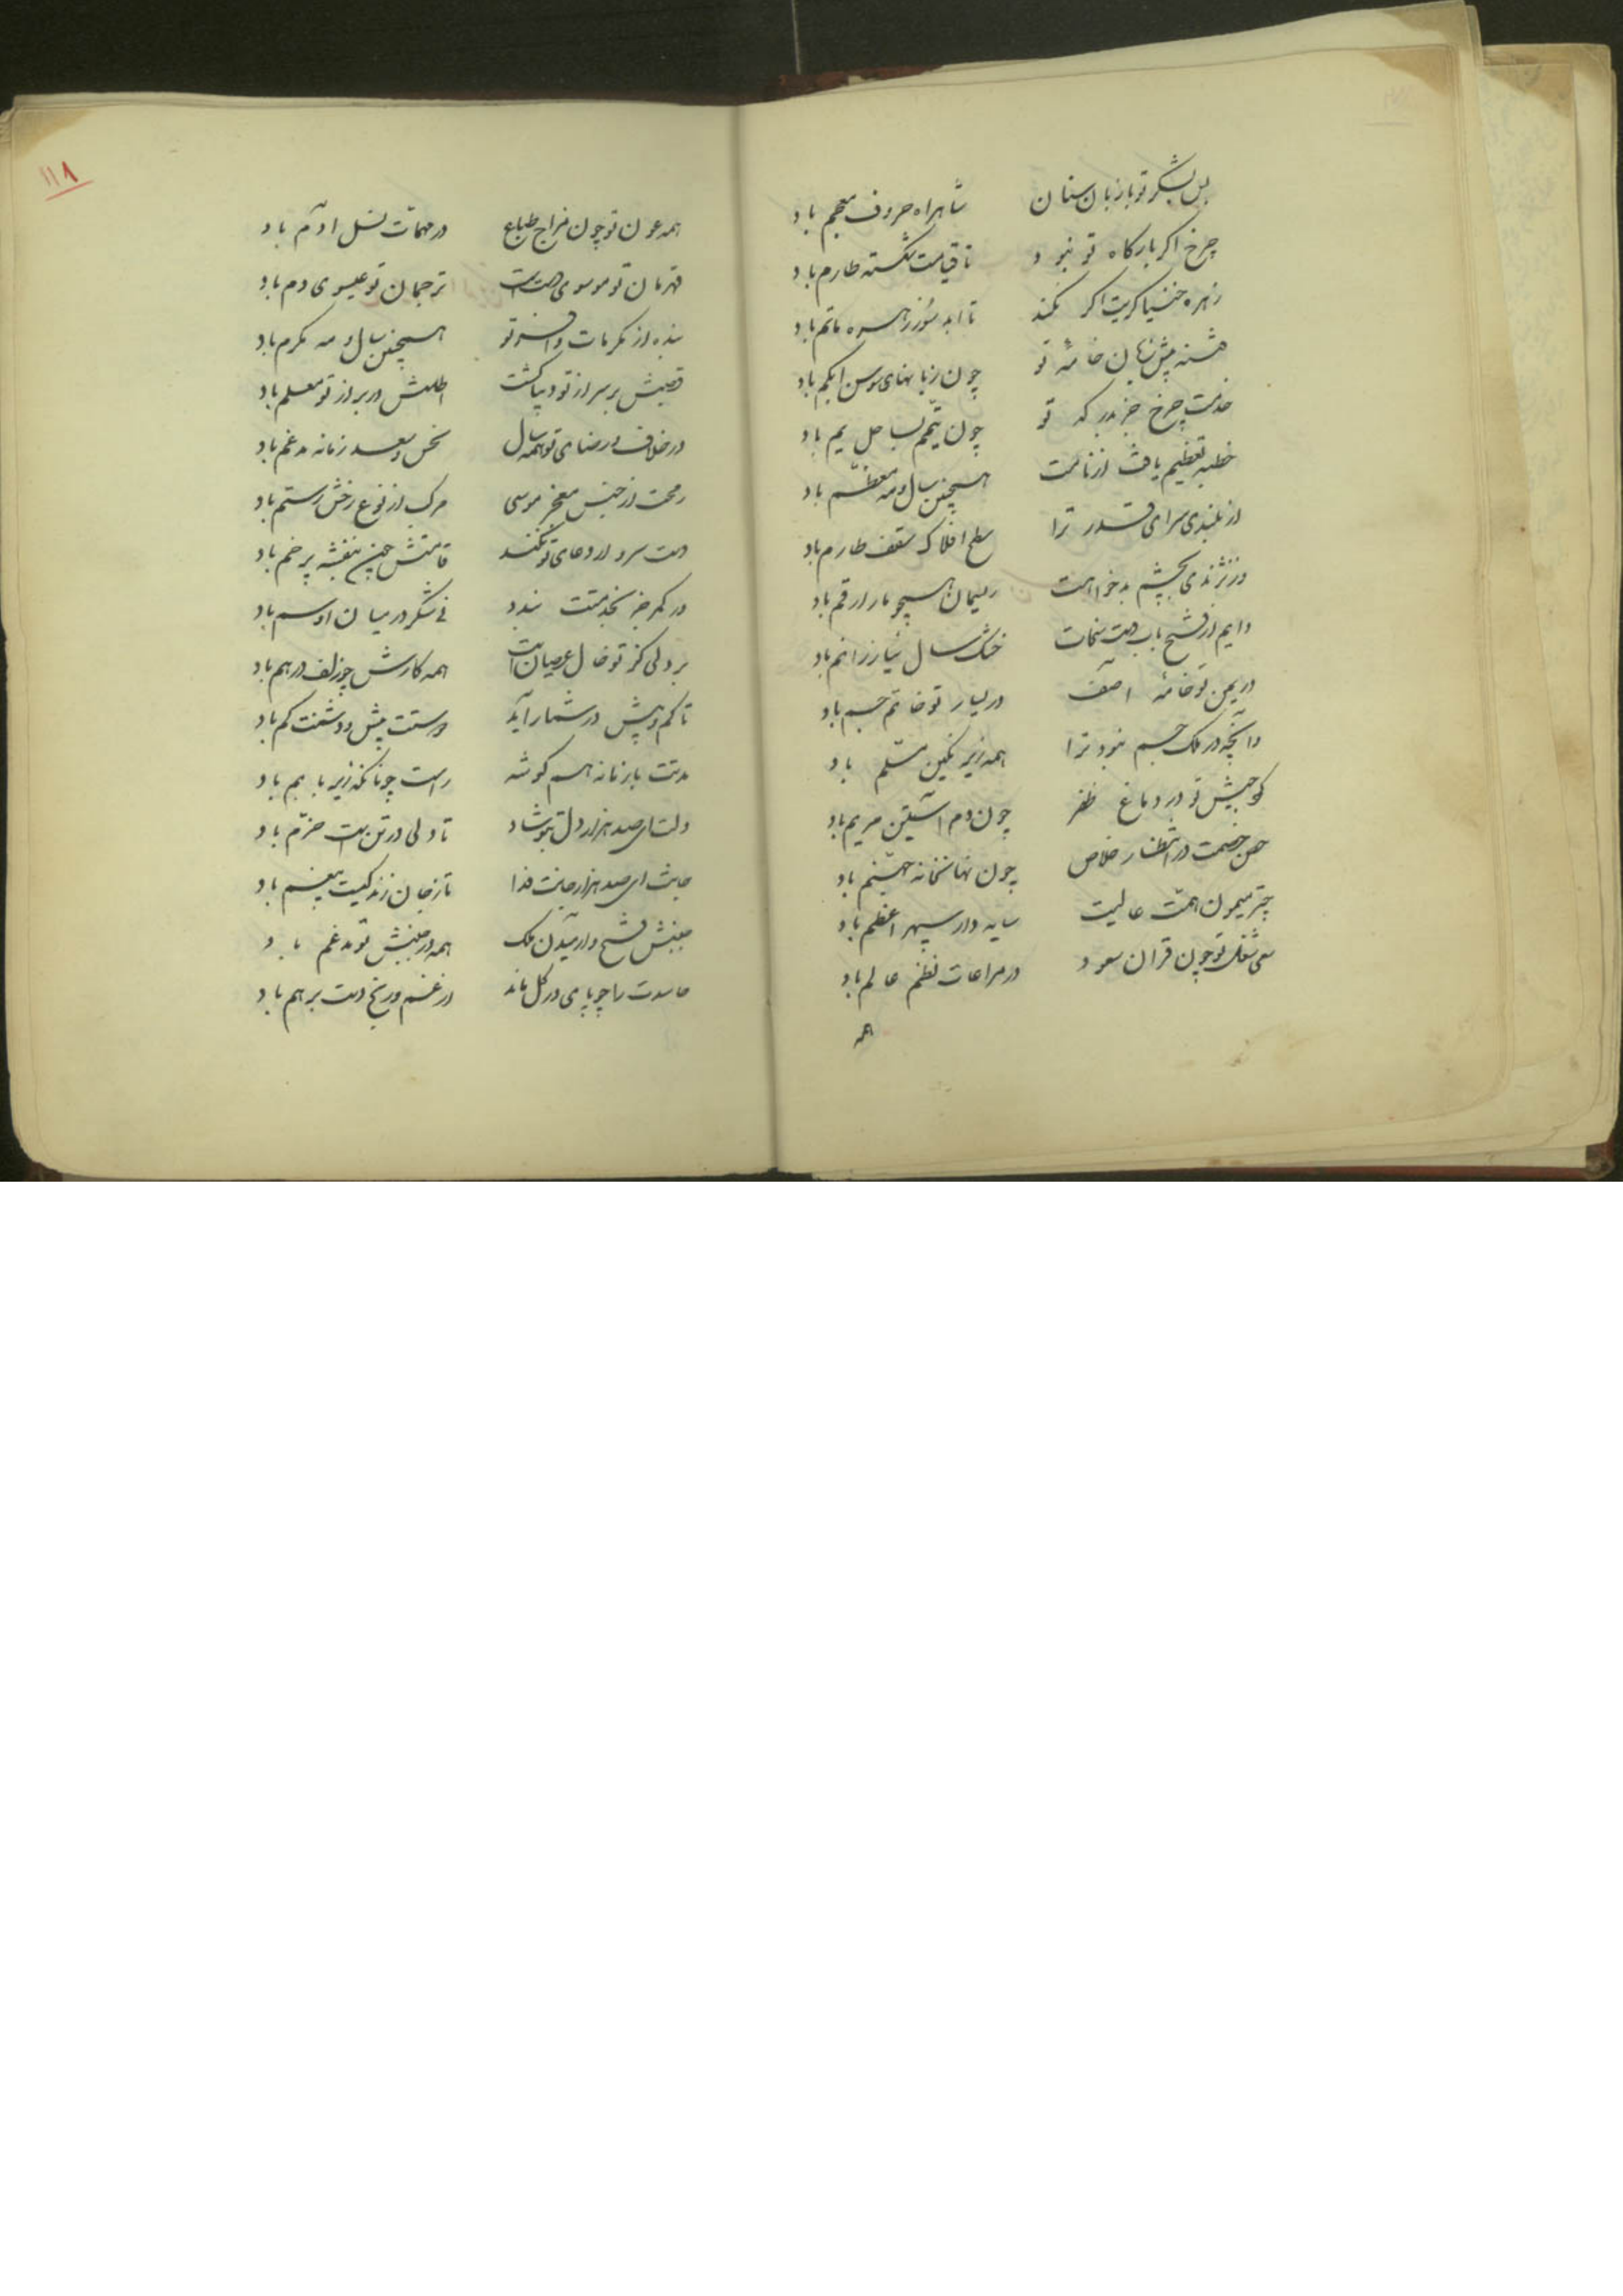 پل بشکر تو با زبان سنان شاهراه حروف معجم باد
چرخ اکر بارکاه تو نبود تا قیامت شکسته طارم باد
زهره خنیاکریت اکر نکند تا ابد سور زهره ماتم باد
تو چون زبانهای سوسن ابکم باد
خدمت چرخ جز بدرکه تو چون تیمم بساحل یم باد
خطبه تعظیم یافت از نامت همچنین سال و مه معظم باد
از بلندی سرای قدر ترا سطح افلاک سقف طارم باد
وز نژندی بچشم بدخواهت ریسمان همچو مار ارقم باد
دایم از فتح باب دست سخات خشک سال نیاز را نم باد
در یمین تو خامهٔ آصف در یسار تو خاتم جم باد
وانچه در ملک جم نبود ترا همه زیر نکین مسلم باد
کوس جیش تو در دماغ ظفر چون دم آستین مریم باد
حصن خصمت در انتظار خلاص چون نهانخانه جهنم باد
چتر میمون همت عالیت سایه دار سپهر اعظم باد
سعی شغل تو چون قران سعود در مراعات نظم عالم باد
همه
۱۱۸
همه عون تو چون مزاج طباع در مهمات نسل آدم باد
قهرمان تو موسوی دست است ترجمان تو عیسوی دم باد
بنده از مکرمات وافر تو همچنین سال و مه مکرم باد
قصبش بر سر از تو دیبا کشت اطلسش در بر از تو معلم باد
در خلاف و رضای تو همه سال نحس و سعد زمانه مدغم باد
رمحت از جنس معجز موسی مرکب از نوع رخش رستم باد
دست سرو ار دعای تو نکند قامتش چون بنفشه پر خم باد
ور کمر جز بخدمتت بندد نی شکر در میان او سم باد
هر دلی کز تو خال عصیان داشت همه کارش چو زلف درهم باد
تا کم و بیش در شمار آید دوستت بیش و دشمنت کم باد
مدتت با زمانه هم کوشه راست چونانکه زیر با بم باد
دلت ای صد هزار دل بتو شاد تا دلی در تن است خرم باد
جانت ای صد هزار جانت فدا تا ز جان زندکیست بیغم باد
جنبش فتح و آرمیدن ملک همه در جنبش تو مدغم باد
حاسدت را چو پای در کل ماند در غم و رنج دست بر هم باد